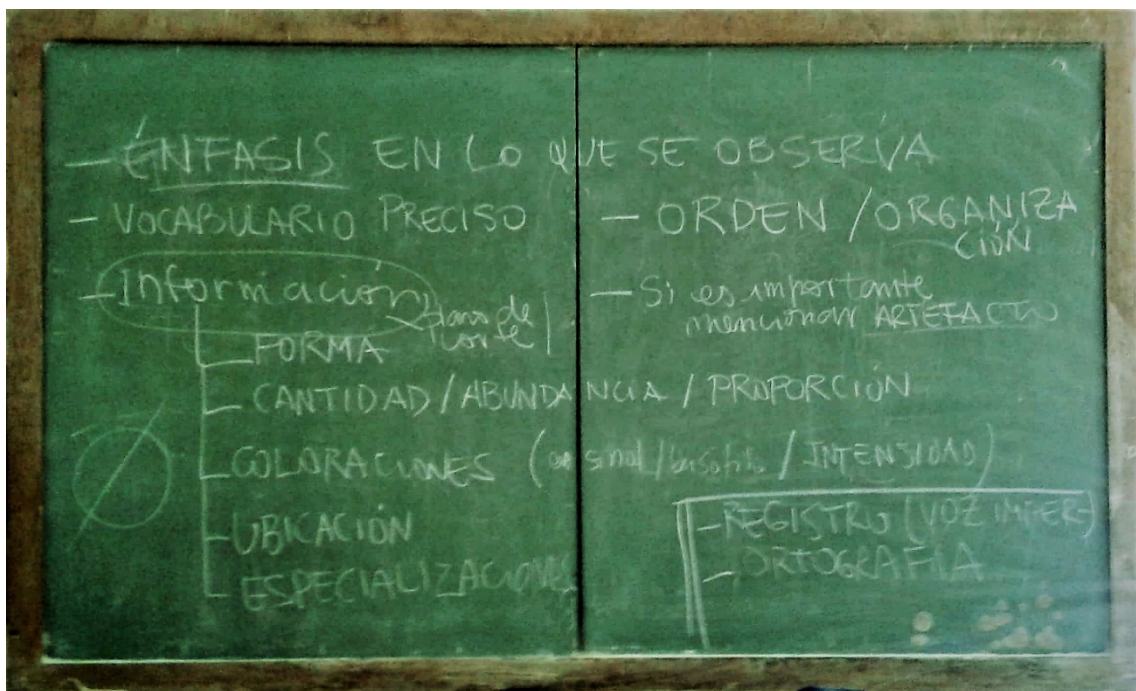 — ÉNFASIS EN LO QUE SE OBSERVA
— VOCABULARIO PRECISO
— ORDEN / ORGANIZA
CIÓN
— Información
plano de
corte
— Si es importante
mencionar ARTEFACTO
FORMA
CANTIDAD / ABUNDANCIA / PROPORCIÓN
COLORACIONES ( / INTENSIDAD)
UBICACIÓN
ESPECIALIZACIONES
— REGISTRO (VOZ IMPER-)
— ORTOGRAFIA